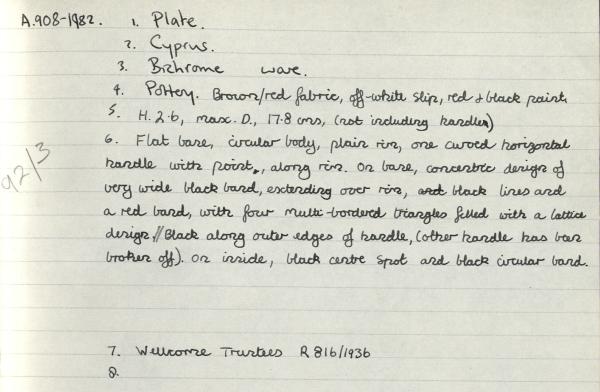 A.908-1982. 1. Plate.
2. Cyprus.
3. Bichrome ware.
4. Pottery. Brown/red fabric, off-white slip, red & black paint.
5. H. 2.6, max. D., 17.8 cms, (not including handles)
6. Flat base, circular body, plain rim, one curved horizontal
handle with point, along rim. On base, concentric design of
very wide black band, extending over rim, and black lines and
a red band, with four multi-bordered triangles filled with a lattice
design,// Black along outer edges of handle, (other handle has been
broken off). On inside, black centre spot and black circular band.
92/3
7. Wellcome Trustees R 816/1936
8.